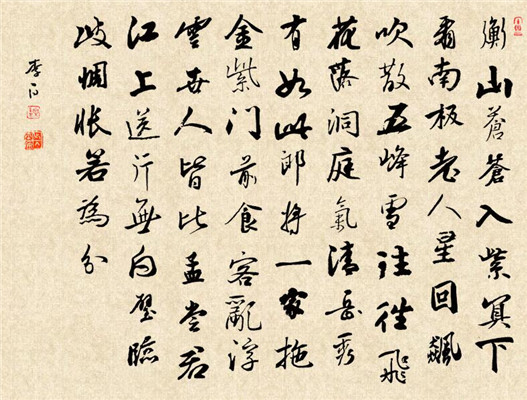 衡山蒼蒼入紫冥下
看南极老人星回飆
吹散五峰雪往往飛
花落洞庭氣清岳秀
有如此郎將一家拖
金紫门前食客亂浮
雲世人皆比孟尝君
江上送行無白璧臨
歧惆悵若為分
李白